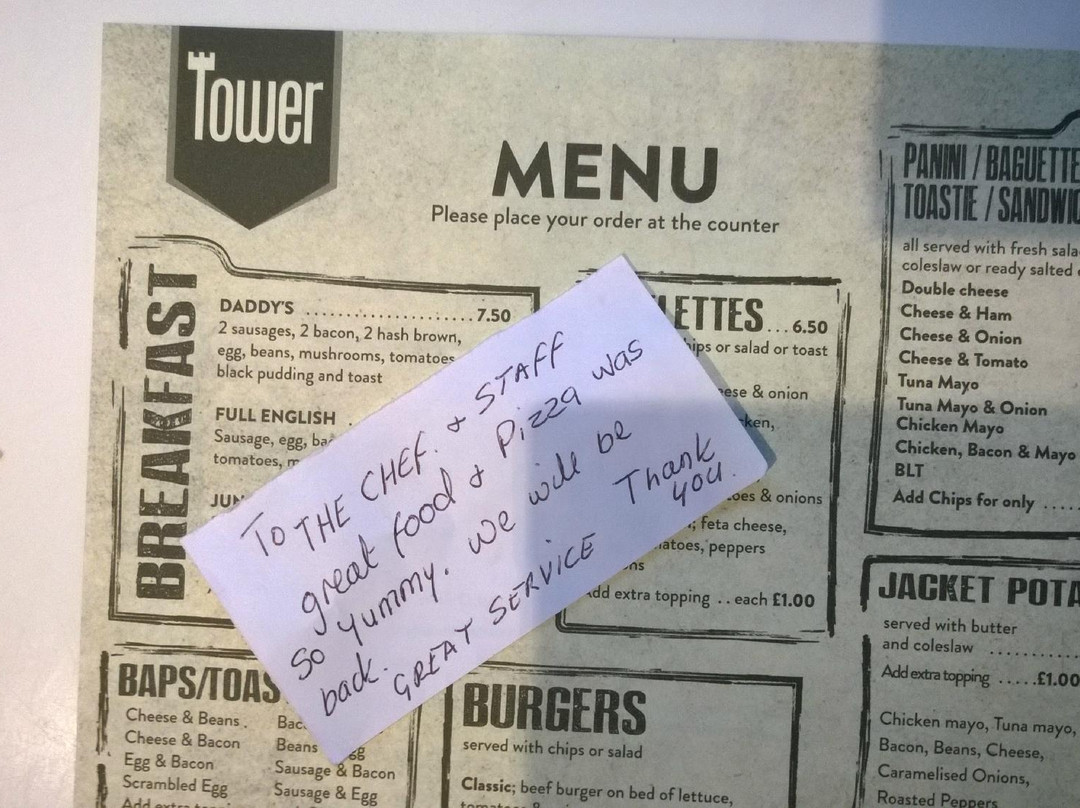 Tower
MENU
Please place your order at the counter
BREAKFAST
DADDY'S ........................ 7.50
2 sausages, 2 bacon, 2 hash brown,
egg, beans, mushrooms, tomatoes
black pudding and toast
FULL ENGLISH
Sausage, egg,
tomatoes,
TO THE CHEF. & STAFF
great food & Pizza was
So yummy. We will be
back.
GREAT SERVICE
Thank
you.
... 6.50
or salad or toast
& onion
& onions
feta cheese,
peppers
extra topping .. each £1.00
PANINI / BAGUETTE
TOASTIE /
all served with fresh
coleslaw or ready salted
Double cheese
Cheese & Ham
Cheese & Onion
Cheese & Tomato
Tuna Mayo
Tuna Mayo & Onion
Chicken Mayo
Chicken, Bacon & Mayo
BLT
Add Chips for only .....
JACKET
served with butter
and coleslaw ..........
Add extra topping .....£1.00
Chicken mayo, Tuna mayo,
Bacon, Beans, Cheese,
Caramelised Onions,
Roasted Peppers
BAPS/
Cheese & Beans .
Cheese & Bacon
Egg & Bacon
Scrambled Egg
Add extra
Beans
Sausage & Bacon
Sausage & Egg
BURGERS
served with chips or salad
Classic; beef burger on bed of lettuce,